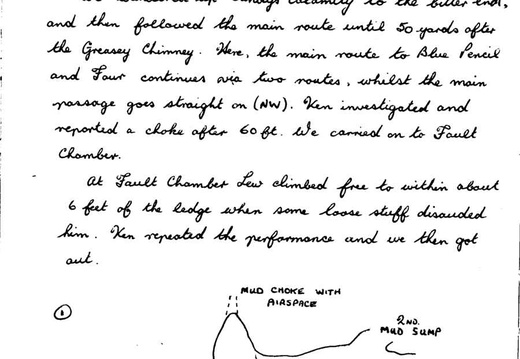 calamity to the bitter end,
and then followed the main route until 50 yards after
the Greasey Chimney. Here, the main route to Blue Pencil
and Four continues via two routes, whilst the main
passage goes straight on (NW). Ken investigated and
reported a choke after 60 ft. We carried on to Fault
Chamber.
At Fault Chamber Lew climbed free to within about
6 feet of the ledge when some loose stuff disauded
him. Ken repeated the performance and we then got
out.
MUD CHOKE WITH
AIRSPACE
1
2ND.
MUD SUMP